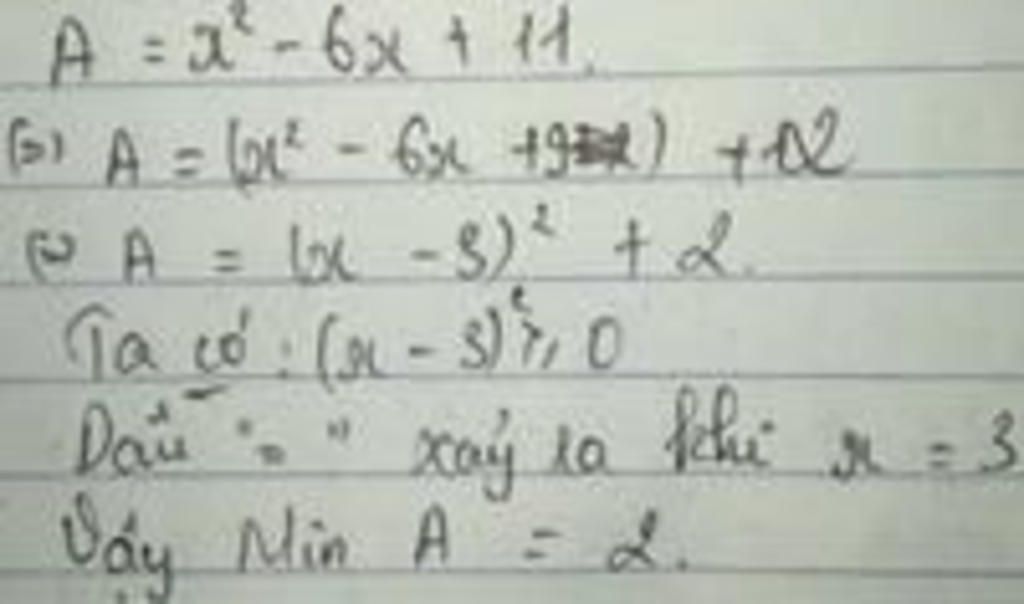 A = x² - 6x + 11.
(=) A = (x² - 6x + 9) + 2
(=) A = (x - 3)² + 2.
Ta có : (x - 3)² ≥ 0
Dấu "=" xảy ra khi x = 3
Vậy Min A = 2.